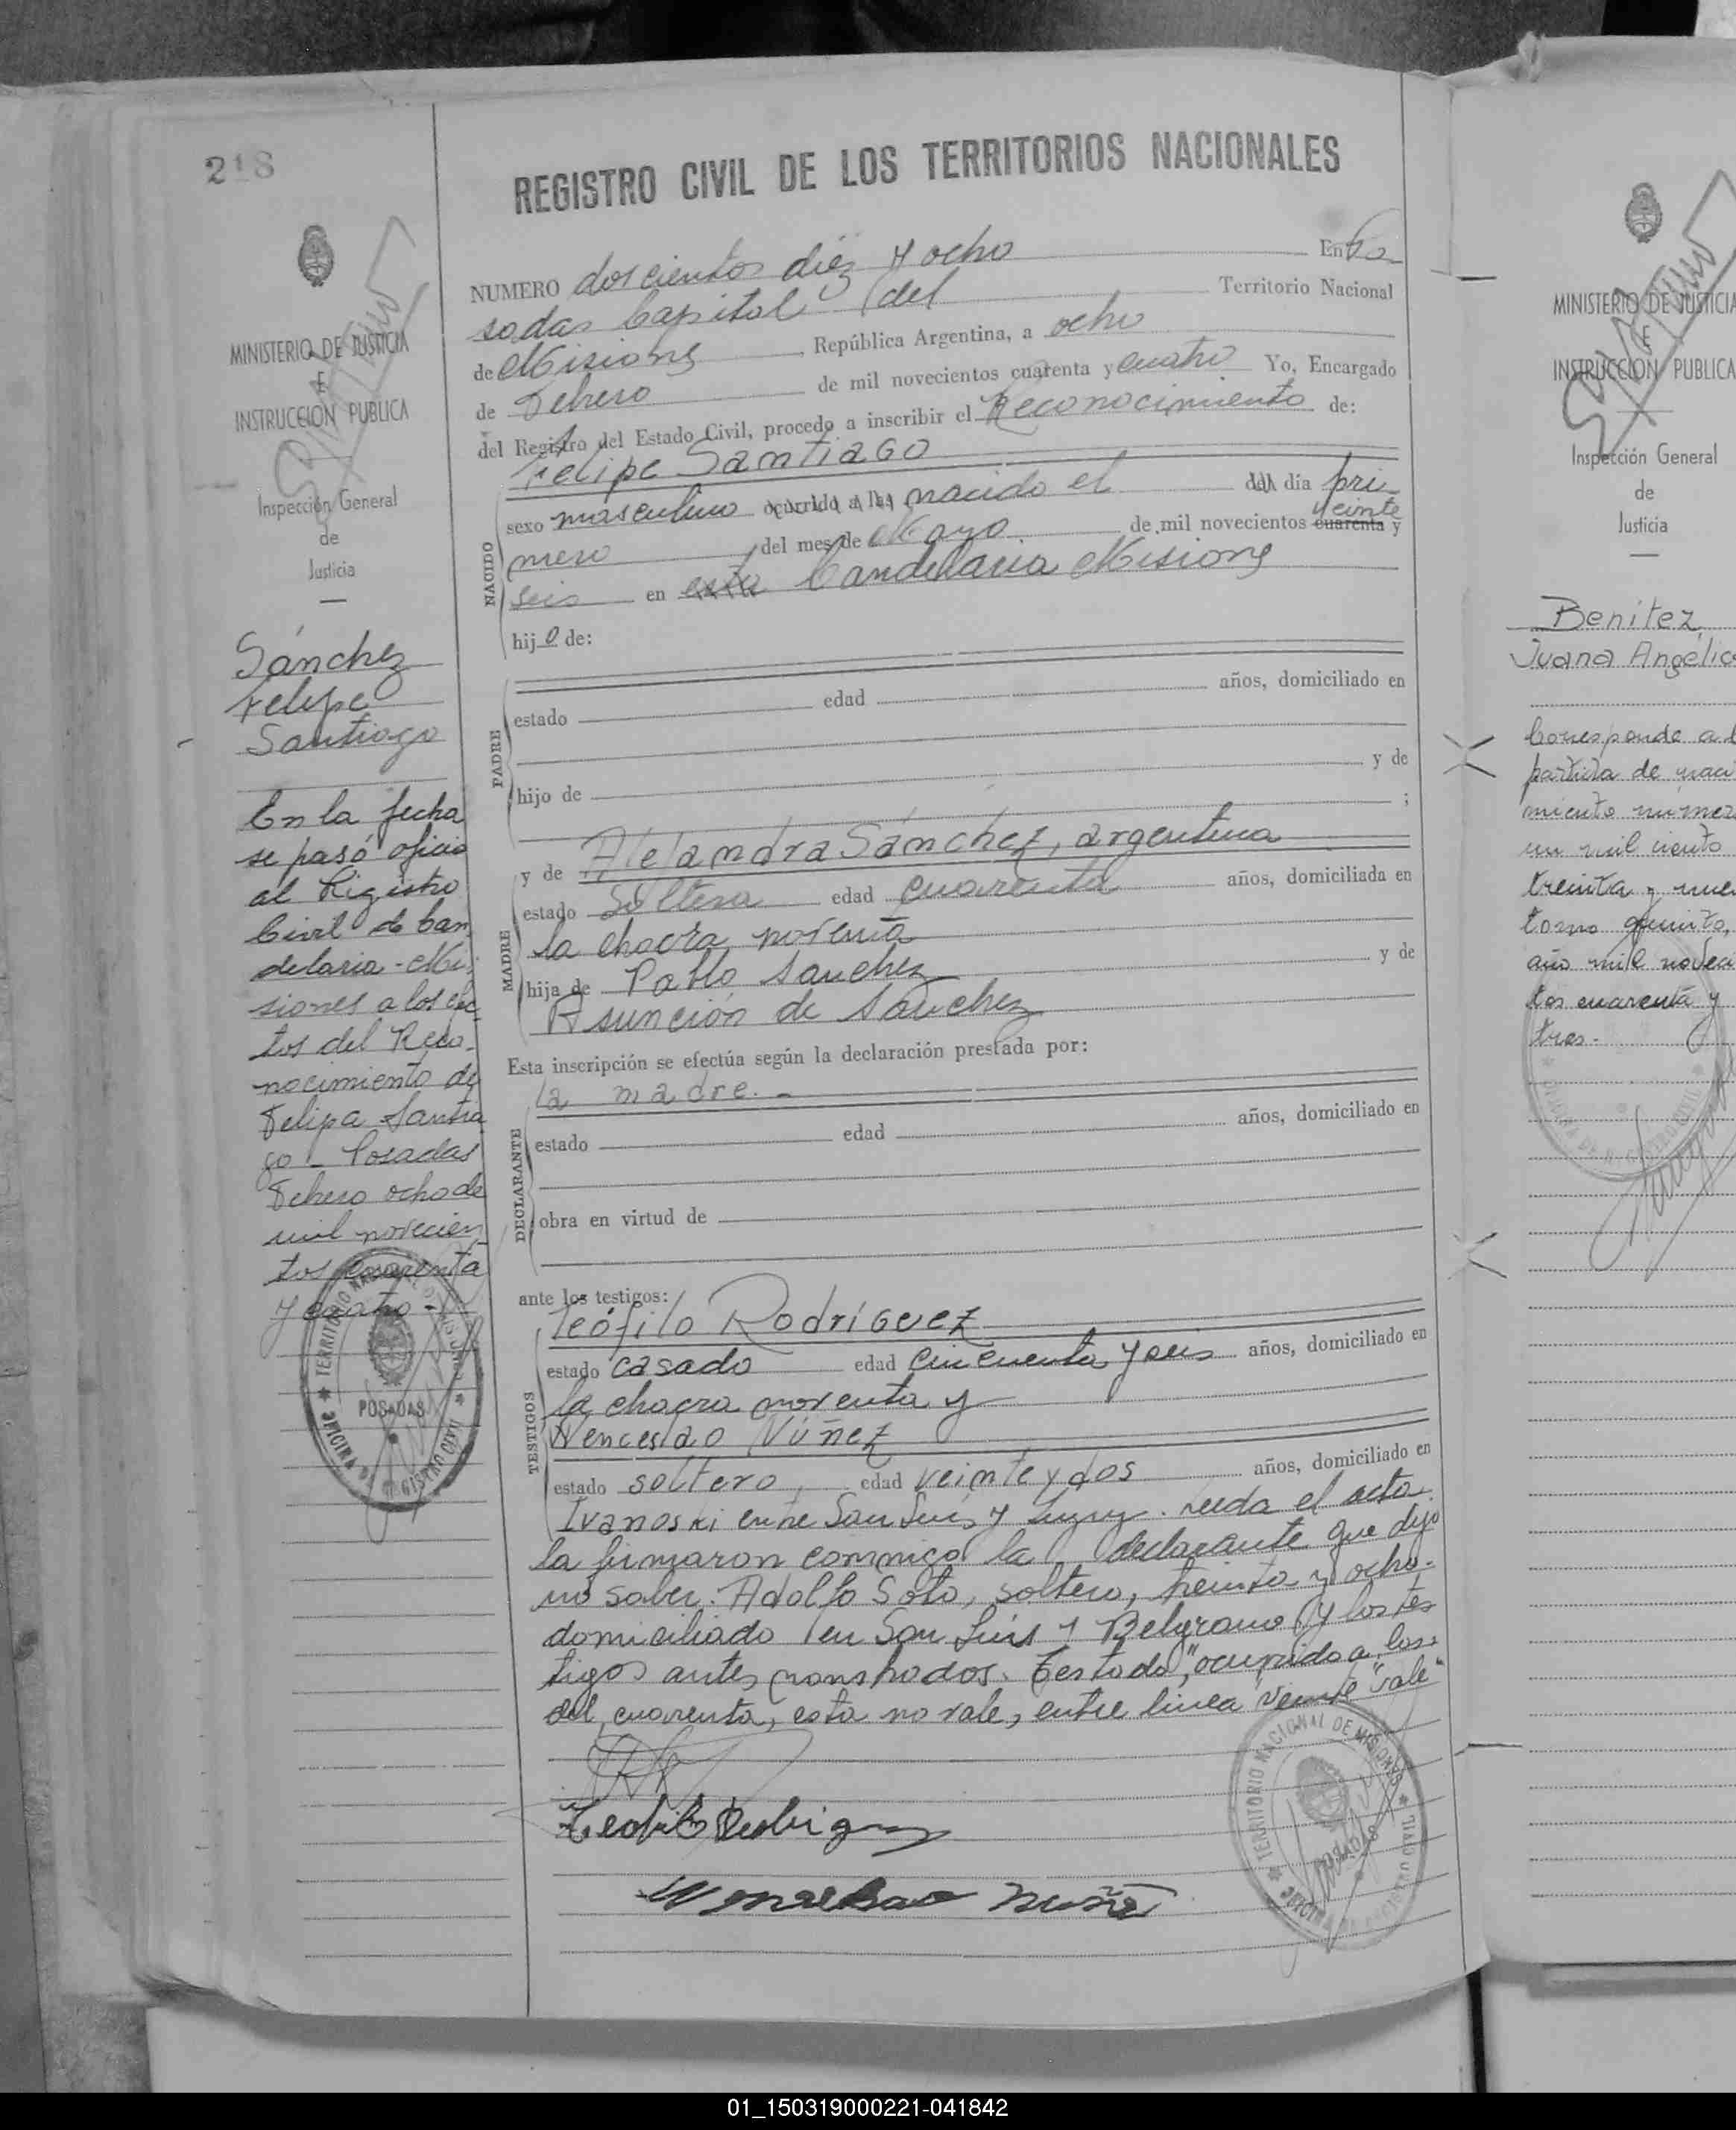 218
REGISTRO CIVIL DE LOS TERRITORIOS NACIONALES
MINISTERIO DE JUSTICIA
E
INSTRUCCION PUBLICA
Inspección General
de
Justicia
Sánchez
Felipe
Santiago
En la fecha
se pasó oficio
al Registro
Civil de Can
delaria - Mi
siones a los efec
tos del Reco-
nocimiento de
Felipa Santia
go - Posadas
Febrero ocho de
mil novecien
tos cuarenta
y cuatro -
TERRITORIO NACIONAL DE MISIONES
POSADAS
OFICINA DE REGISTRO CIVIL
NUMERO doscientos diez y ocho En Po
sadas Capital del Territorio Nacional
de Misiones, República Argentina, a ocho
de Febrero de mil novecientos cuarenta y cuatro Yo, Encargado
del Registro del Estado Civil, procedo a inscribir el Reconocimiento de:
Felipe Santiago
NACIDO
sexo masculino ocurrido a las nacido el del día pri-
veinte
mero, del mes de Mayo de mil novecientos cuarenta y
seis en esta Candelaria Misiones
hijo de:
PADRE
estado edad años, domiciliado en
hijo de y de
;
MADRE
y de Alejandra Sánchez, argentina
estado soltera edad cuarenta años, domiciliada en
la chacra noventa
hija de Pablo Sanchez y de
Asunción de Sanchez
Esta inscripción se efectúa según la declaración prestada por:
la madre. -
DECLARANTE
estado edad años, domiciliado en
obra en virtud de
ante los testigos:
TESTIGOS
Teófilo Rodríguez
estado casado edad cincuenta y seis años, domiciliado en
la chacra noventa y
Wenceslao Núñez
estado soltero, edad veinte y dos años, domiciliado en
Ivanoski entre San Luis y Jujuy. Leida el acta
la firmaron conmigo la declarante que dijo
no saber. Adolfo Soto, soltero, treinta y ocho.
domiciliado en San Luis y Belgrano y los tes
tigos antes nombrados. Testado, "ocurrido a las"
del, cuarenta, esta no vale, entre linea "veinte" vale"
Teofilo Rodriguez
Wenceslao Nuñez
TERRITORIO NACIONAL DE MISIONES
POSADAS
OFICINA DE REGISTRO CIVIL
MINISTERIO DE JUSTICIA
E
INSTRUCCION PUBLICA
Inspección General
de
Justicia
Benitez
Juana Angélica
Corresponde a l
partida de naci
miento numer
un mil ciento
treinta y nue
tomo quinto,
año mil noveci
tos cuarenta y
tres.-
01_150319000221-041842